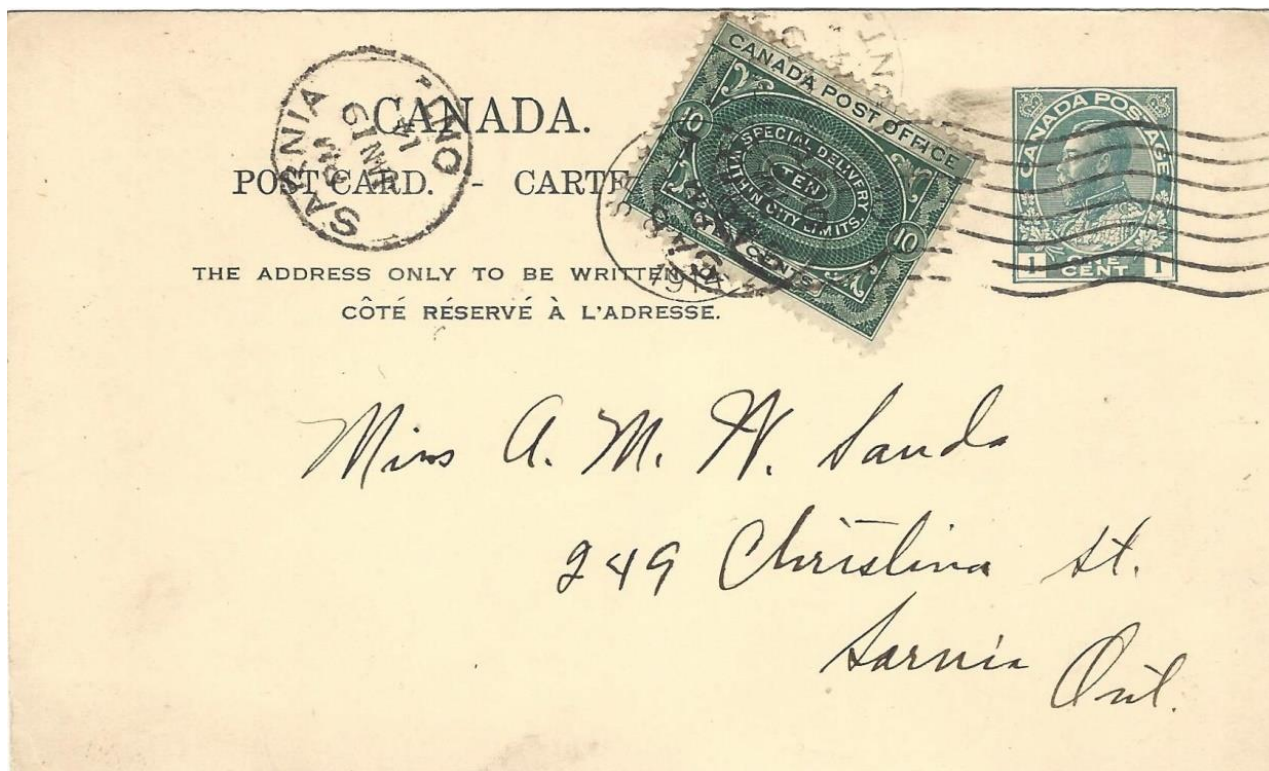 CANADA.
POST CARD. - CARTE
THE ADDRESS ONLY TO BE WRITTEN
CÔTÉ RÉSERVÉ À L'ADRESSE.
SARNIA ONT.
PM
JAN 19
14
CANADA POST OFFICE
10 10
SPECIAL DELIVERY
TEN
WITHIN CITY LIMITS.
TEN CENTS
1914
CANADA POSTAGE
1 ONE CENT 1
Miss A. M. W. Sands
249 Christina St.
Sarnia Ont.